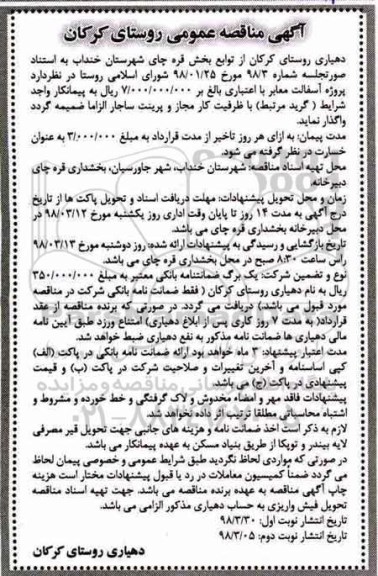 آگهی مناقصه عمومی روستای کرکان
دهیاری روستای کرکان از توابع بخش قره چای شهرستان خنداب به استناد
صورتجلسه شماره ۹۸/۳ مورخ ۹۸/۰۱/۲۵ شورای اسلامی روستا در نظردارد
پروژه آسفالت معابر با اعتباری بالغ بر ۷/۰۰۰/۰۰۰/۰۰۰ ریال به پیمانکار واجد
شرایط ( گرید مرتبط) با ظرفیت کار مجاز و پرینت ساجار الزاما ضمیمه گردد
واگذار نماید.
مدت پیمان: به ازای هر روز تاخیر از مدت قرارداد به مبلغ ۳/۰۰۰/۰۰۰ به عنوان
خسارت در نظر گرفته می شود.
محل تهیه اسناد مناقصه: شهرستان خنداب، شهر جاورسیان، بخشداری قره چای
دبیرخانه.
زمان و محل تحویل پیشنهادات: مهلت دریافت اسناد و تحویل پاکت ها از تاریخ
درج آگهی به مدت ۱۴ روز تا پایان وقت اداری روز یکشنبه مورخ ۹۸/۰۳/۱۲ در
محل دبیرخانه بخشداری قره چای می باشد.
تاریخ بازگشایی و رسیدگی به پیشنهادات ارائه شده: روز دوشنبه مورخ ۹۸/۰۳/۱۳
راس ساعت ۸:۳۰ صبح در محل بخشداری قره چای می باشد.
نوع و تضمین شرکت: یک برگ ضمانتنامه بانکی معتبر به مبلغ ۳۵۰/۰۰۰/۰۰۰
ریال به نام دهیاری روستای کرکان ( فقط ضمانت نامه بانکی شرکت در مناقصه
مورد قبول می باشد.) دریافت می گردد. در صورتی که برنده مناقصه از عقد
قرارداد( به مدت ۷ روز کاری پس از ابلاغ دهیاری) امتناع ورزد طبق آیین نامه
مالی دهیاری ها ضمانت نامه مذکور به نفع دهیاری ضبط خواهد شد.
مدت اعتبار پیشنهاد: ۳ ماه خواهد بود ارائه ضمانت نامه بانکی در پاکت (الف)
کپی اساسنامه و آخرین تغییرات و صلاحیت شرکت در پاکت (ب) و قیمت
پیشنهادی در پاکت (ج) می باشد.
پیشنهادات فاقد مهر و امضاء مخدوش و لاک گرفتگی و خط خورده و مشروط و
اشتباه محاسباتی مطلقا ترتیب اثر داده نخواهد شد.
لازم به ذکر است اخذ ضمانت نامه و هزینه های جانبی جهت تحویل قیر مصرفی
لایه بیندر و توپکا از طریق بنیاد مسکن به عهده پیمانکار می باشد.
در صورتی که مواردی لحاظ نگردید طبق شرایط عمومی و خصوصی پیمان لحاظ
می گردد ضمناً کمیسیون معاملات در رد یا قبول پیشنهادات مختار است هزینه
چاپ آگهی مناقصه به عهده برنده مناقصه می باشد. جهت تهیه اسناد مناقصه
تحویل فیش واریزی به حساب دهیاری مذکور الزامی می باشد.
تاریخ انتشار نوبت اول: ۹۸/۳/۳۰
تاریخ انتشار نوبت دوم: ۹۸/۳/۰۵
دهیاری روستای کرکان